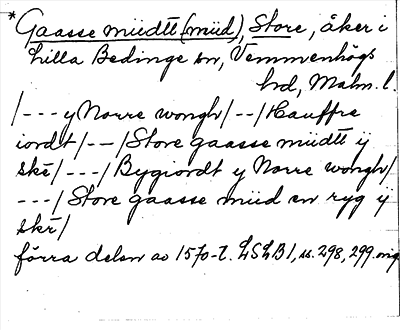 *Gaasse müdtt (müd), Store, åker i
Lilla Bedinge sn, Vemmenhögs
hd, Malm. l.
/---y Norre wongh/--/Hauffre
iordt/--/Store gaasse müdtt ÿ
skē/---/Bygiordt y Norre wongh/
---/Store gaasse müd en ryg ÿ
skē/
förra delen av 1570-t. LSLB1, ss. 298, 299. orig